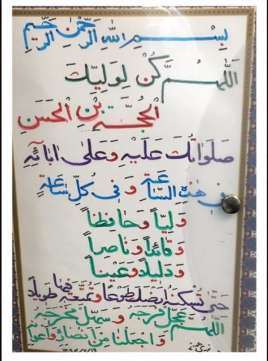 بِسْمِ اللهِ الرَّحْمٰنِ الرَّحیمِ
اَللّٰهُمَّ کُنْ لِوَلِیِّکَ
الْحُجَّةِ بْنِ الْحَسَنِ
صَلَواتُکَ عَلَیْهِ وَ عَلیٰ ابائِهِ
فی هٰذِهِ السّاعَةِ وَ فی کُلِّ ساعَةٍ
وَلِیّاً وَ حافِظاً
وَ قائِداً وَ ناصِراً
وَ دَلیلاً وَ عَیْناً
حَتّیٰ تُسْکِنَهُ اَرْضَکَ طَوْعاً وَ تُمَتِّعَهُ فیها طَویلاً
اَللّٰهُمَّ عَجِّلْ فَرَجَهُ وَ سَهِّلْ مَخْرَجَهُ
وَ اجْعَلْنا مِنْ اَنْصارِهِ وَ اَعْوانِهِ